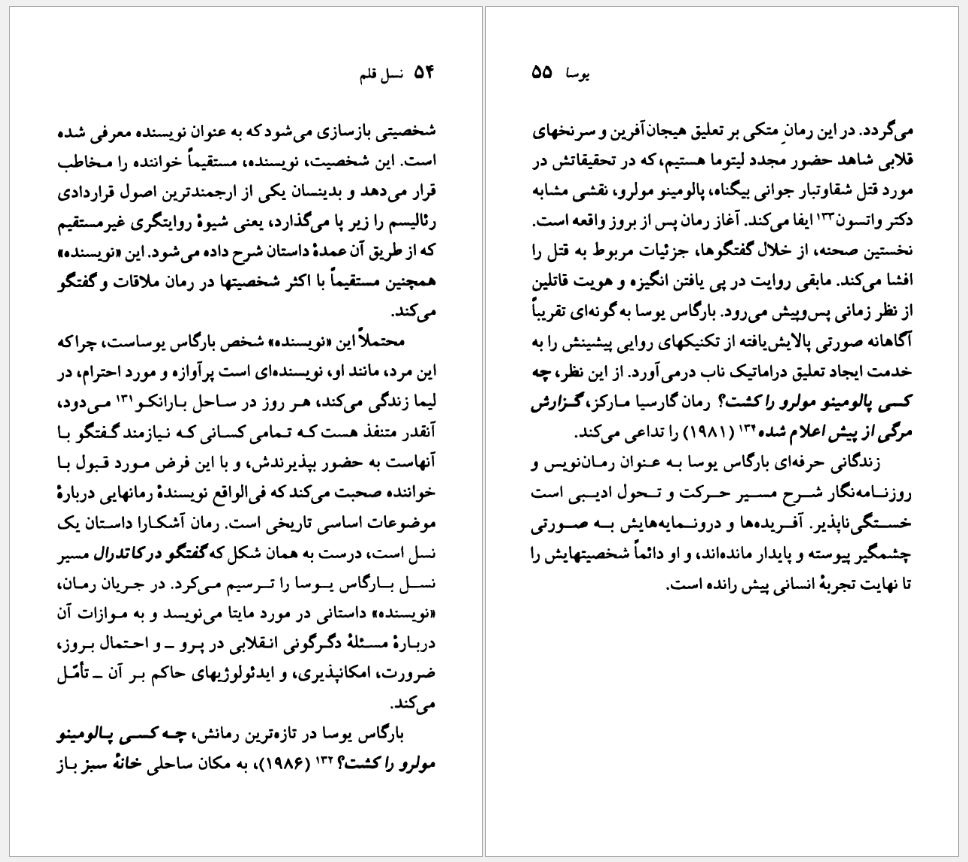 ۵۴ نسل قلم
شخصیتی بازسازی می‌شود که به عنوان نویسنده معرفی شده
است. این شخصیت، نویسنده، مستقیماً خواننده را مخاطب
قرار می‌دهد و بدینسان یکی از ارجمندترین اصول قراردادی
رئالیسم را زیر پا می‌گذارد، یعنی شیوهٔ روایتگری غیرمستقیم
که از طریق آن عمدهٔ داستان شرح داده می‌شود. این «نویسنده»
همچنین مستقیماً با اکثر شخصیتها در رمان ملاقات و گفتگو
می‌کند.
محتملاً این «نویسنده» شخص بارگاس یوساست، چرا که
این مرد، مانند او، نویسنده‌ای است پرآوازه و مورد احترام، در
لیما زندگی می‌کند، هر روز در ساحل بارانکو۱۳۱ می‌دود،
آنقدر متنفذ هست که تمامی کسانی که نیازمند گفتگو با
آنهاست به حضور بپذیرندش، و با این فرض مورد قبول با
خواننده صحبت می‌کند که فی‌الواقع نویسندهٔ رمانهایی دربارهٔ
موضوعات اساسی تاریخی است. رمان آشکارا داستان یک
نسل است، درست به همان شکل که گفتگو در کاتدرال مسیر
نسل بارگاس یوسا را ترسیم می‌کرد. در جریان رمان،
«نویسنده» داستانی در مورد مایتا می‌نویسد و به موازات آن
دربارهٔ مسئلهٔ دگرگونی انقلابی در پرو ـ و احتمال بروز،
ضرورت، امکانپذیری، و ایدئولوژیهای حاکم بر آن ـ تأمّل
می‌کند.
بارگاس یوسا در تازه‌ترین رمانش، چه کسی پالومینو
مولرو را کشت؟۱۳۲ (۱۹۸۶)، به مکان ساحلی خانهٔ سبز باز
یوسا ۵۵
می‌گردد. در این رمانِ متکی بر تعلیق هیجان‌آفرین و سرنخهای
قلابی شاهد حضور مجدد لیتوما هستیم، که در تحقیقاتش در
مورد قتل شقاوتبار جوانی بیگناه، پالومینو مولرو، نقشی مشابه
دکتر واتسون۱۳۳ ایفا می‌کند. آغاز رمان پس از بروز واقعه است.
نخستین صحنه، از خلال گفتگوها، جزئیات مربوط به قتل را
افشا می‌کند. مابقی روایت در پی یافتن انگیزه و هویت قاتلین
از نظر زمانی پس‌وپیش می‌رود. بارگاس یوسا به گونه‌ای تقریباً
آگاهانه صورتی پالایش‌یافته از تکنیکهای روایی پیشینش را به
خدمت ایجاد تعلیق دراماتیک ناب درمی‌آورد. از این نظر، چه
کسی پالومینو مولرو را کشت؟ رمان گارسیا مارکز، گزارش
مرگی از پیش اعلام شده۱۳۴ (۱۹۸۱) را تداعی می‌کند.
زندگانی حرفه‌ای بارگاس یوسا به عنوان رمان‌نویس و
روزنامه‌نگار شرح مسیر حرکت و تحول ادیبی است
خستگی‌ناپذیر. آفریده‌ها و درونمایه‌هایش به صورتی
چشمگیر پیوسته و پایدار مانده‌اند، و او دائماً شخصیتهایش را
تا نهایت تجربهٔ انسانی پیش رانده است.